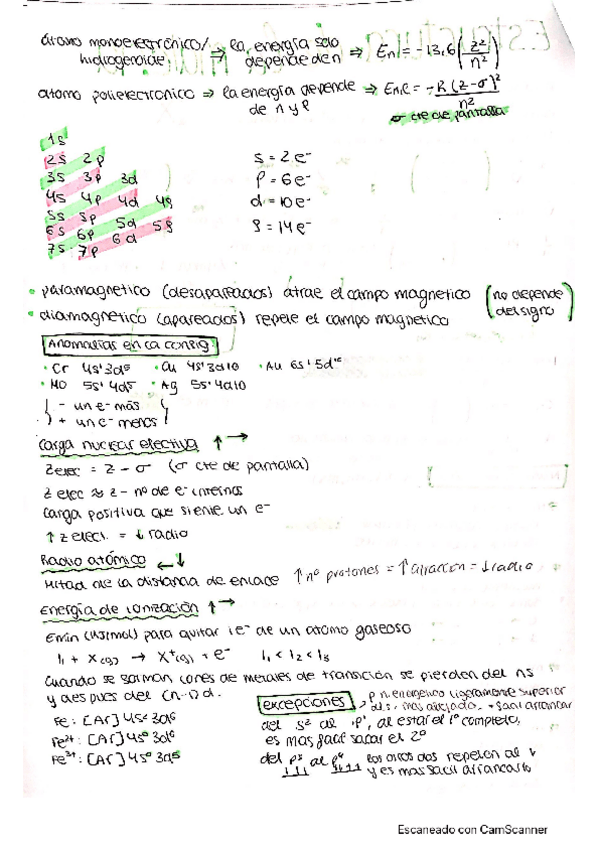 átomo monoelectrónico/ hidrogenoide ⇒ la energía solo depende de n ⇒ En = -13,6 (z²/n²)
átomo polielectronico ⇒ la energía depende de n y l ⇒ En,l = -R (z-σ)²/n²
σ cte de pantalla
1s
2s 2p
3s 3p 3d
4s 4p 4d 4f
5s 5p 5d 5f
6s 6p 6d
7s 7p
s = 2 e⁻
p = 6 e⁻
d = 10 e⁻
f = 14 e⁻
• paramagnetico (desapareados) atrae el campo magnetico (no depende del signo)
• diamagnético (apareados) repele el campo magnetico
Anomalías en la config:
• Cr 4s¹3d⁵ • Cu 4s¹3d10 • Au 6s¹5d¹⁰
• Mo 5s¹4d⁵ • Ag 5s¹4d10
- un e⁻ más
+ un e⁻ menos
carga nuclear efectiva ↑→
Z efec = Z - σ (σ cte de pantalla)
Z efec ≈ Z - nº de e⁻ internos
carga positiva que siente un e⁻
↑ Z efect. = ↓ radio
Radio atómico ←↓
Mitad de la distancia de enlace ↑ nº protones = ↑ atracción = ↓ radio
Energía de ionización ↑→
Emin (kJ/mol) para quitar 1 e⁻ de un atomo gaseoso
I₁ + X(g) → X⁺(g) + e⁻ I₁ < I₂ < I₃
Cuando se forman iones de metales de transición se pierden del ns
y despues del (n-1)d.
Fe: [Ar] 4s² 3d6
Fe²⁺: [Ar] 4s⁰ 3d⁶
Fe³⁺: [Ar] 4s⁰ 3d⁵
excepciones
p n. energético ligeramente superior
al s, mas alejado, + facil arrancar
del s² al p¹, al estar el 1º completo,
es mas facil sacar el 2º
del p³ al p⁴ los otros dos repelen al ↓
y es mas facil arrancarlo
Escaneado con CamScanner